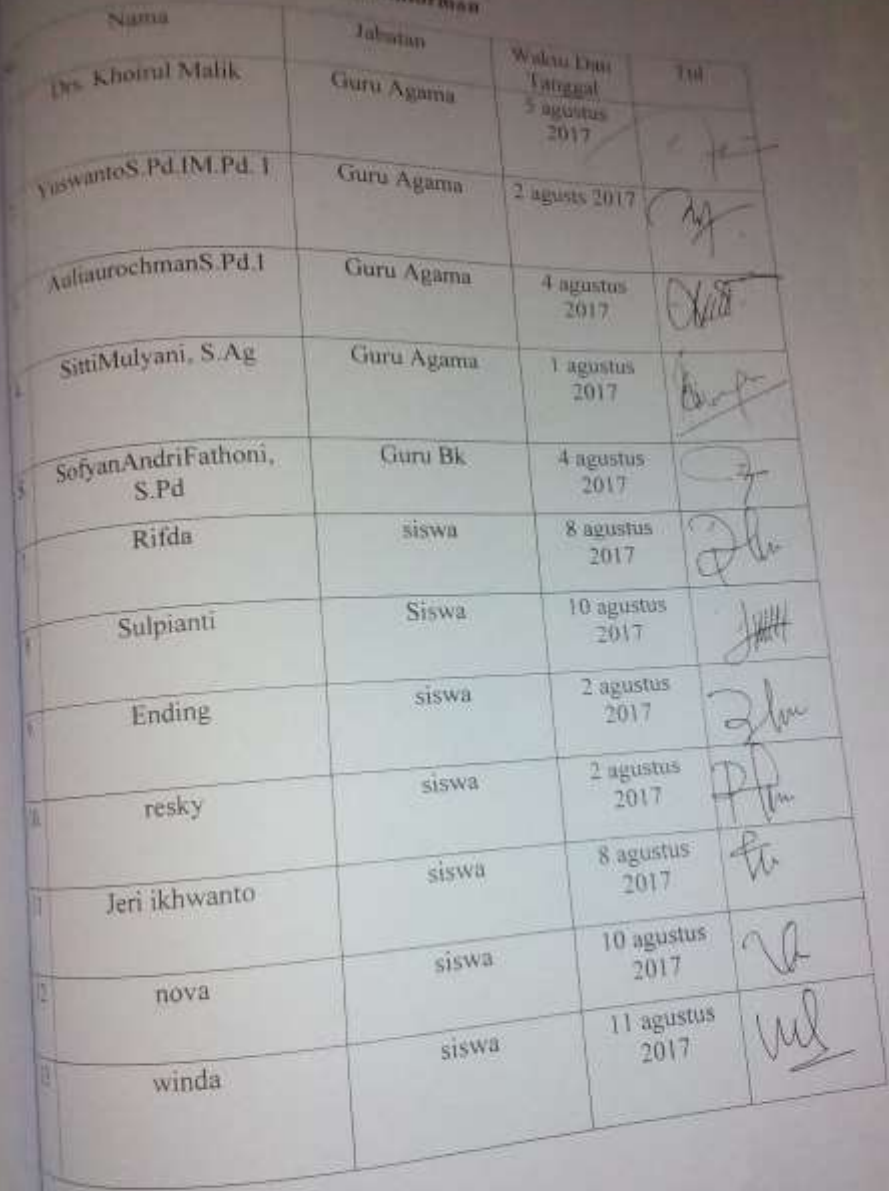 Nama Jabatan Waktu Dan
Tanggal Ttd
Drs. Khoirul Malik Guru Agama 5 agustus
2017
YuswantoS.Pd.IM.Pd. I Guru Agama 2 agusts 2017
AuliaurochmanS.Pd.I Guru Agama 4 agustus
2017
4. SittiMulyani, S.Ag Guru Agama 1 agustus
2017
5. SofyanAndriFathoni,
S.Pd Guru Bk 4 agustus
2017
7 Rifda siswa 8 agustus
2017
8 Sulpianti Siswa 10 agustus
2017
9. Ending siswa 2 agustus
2017
10. resky siswa 2 agustus
2017
11 Jeri ikhwanto siswa 8 agustus
2017
12 nova siswa 10 agustus
2017
13 winda siswa 11 agustus
2017